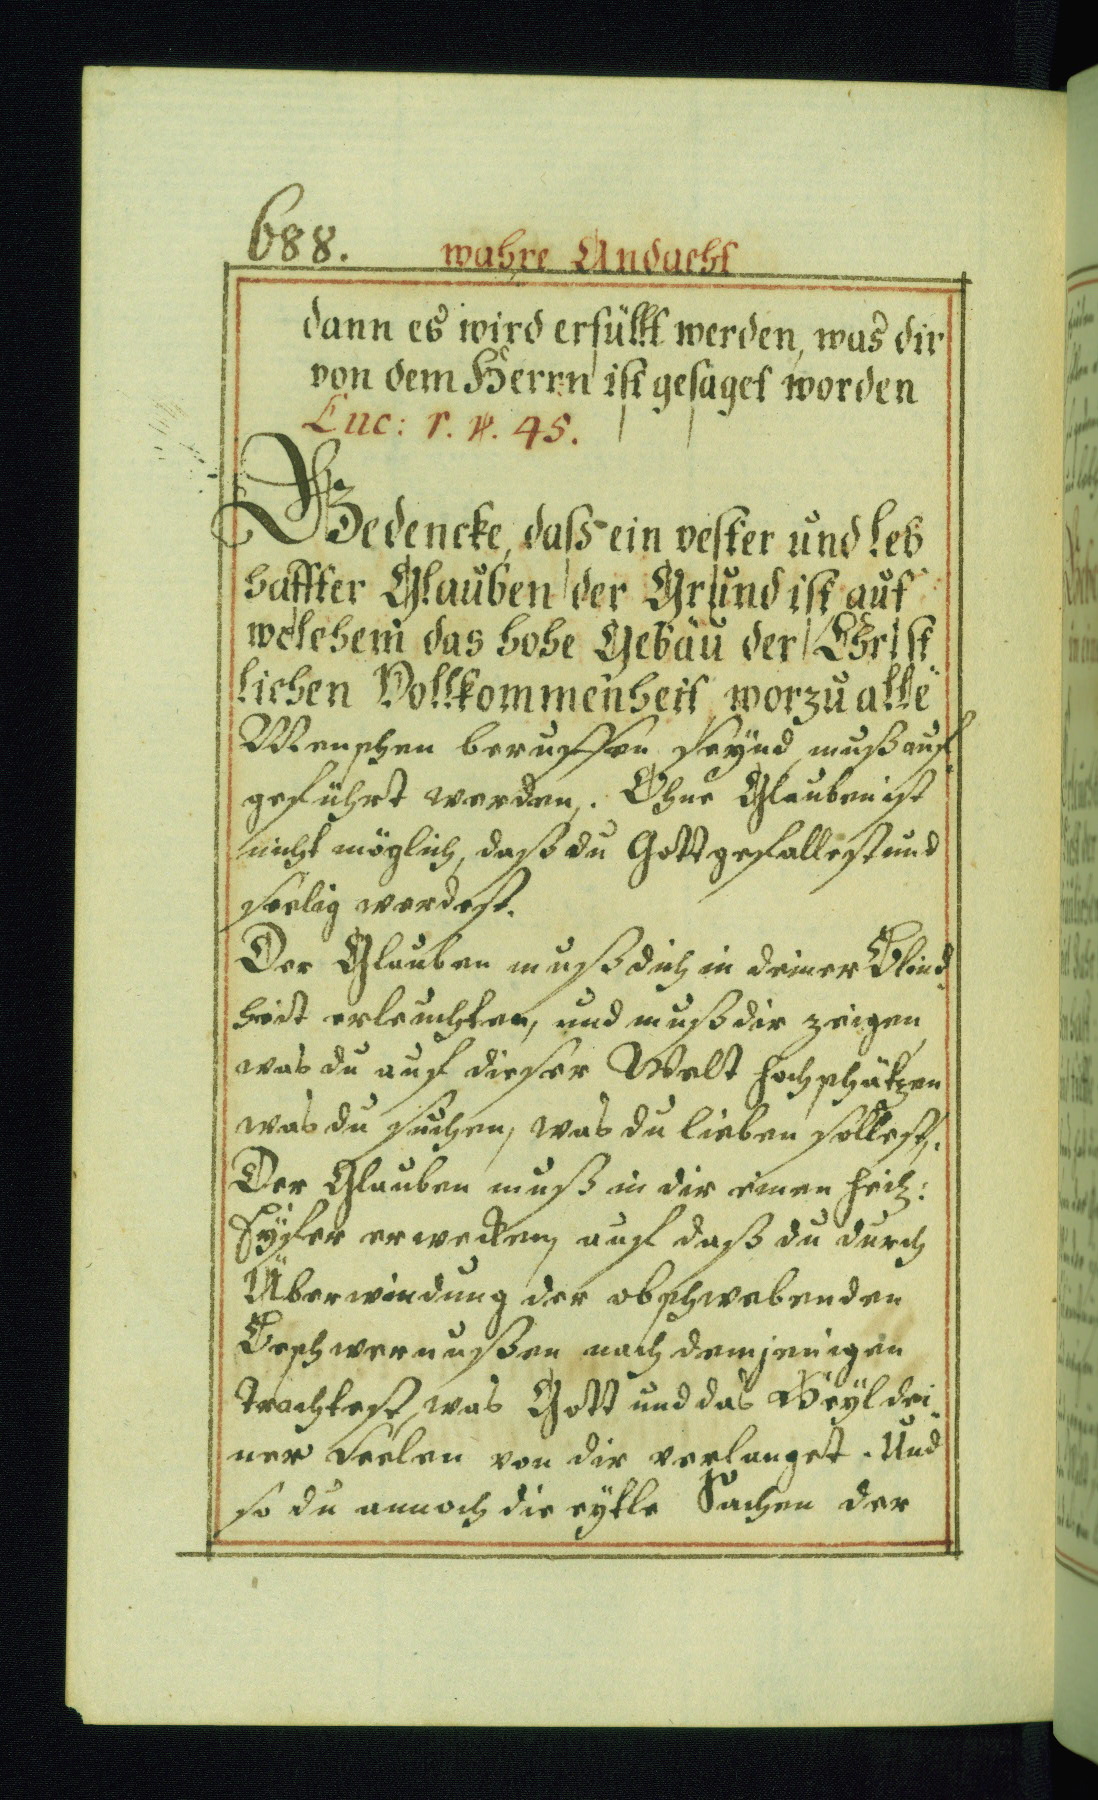 688. wahre Andacht
dann es wird erfüllt werden, was dir
von dem Herrn ist gesaget worden
Luc: 1. v. 45.
Bedencke, dass ein vester und leb
haffter Glauben der Grund ist auf
welchem das hohe Gebäu der Christ
lichen Vollkommenheit, worzu alle
Menschen beruffen seynd, muß auf
geführt werden. Ohne Glauben ist
nicht möglich, daß du Gott gefallest und
seelig werdest.
Der Glauben muß dich in deiner Blind
heit erleuchten, und muß dir zeigen,
was du auf dieser Welt hochschätzen
was du suchen, was du lieben sollest.
Der Glauben muß in dir einen heil:
Eyfer erwecken, auf daß du durch
Überwindung der obschwebenden
Beschwernußen nach demjenigen
trachtest, was Gott und das Heyl dei
ner Seelen von dir verlanget. Und
so du annoch die eytle Sachen der